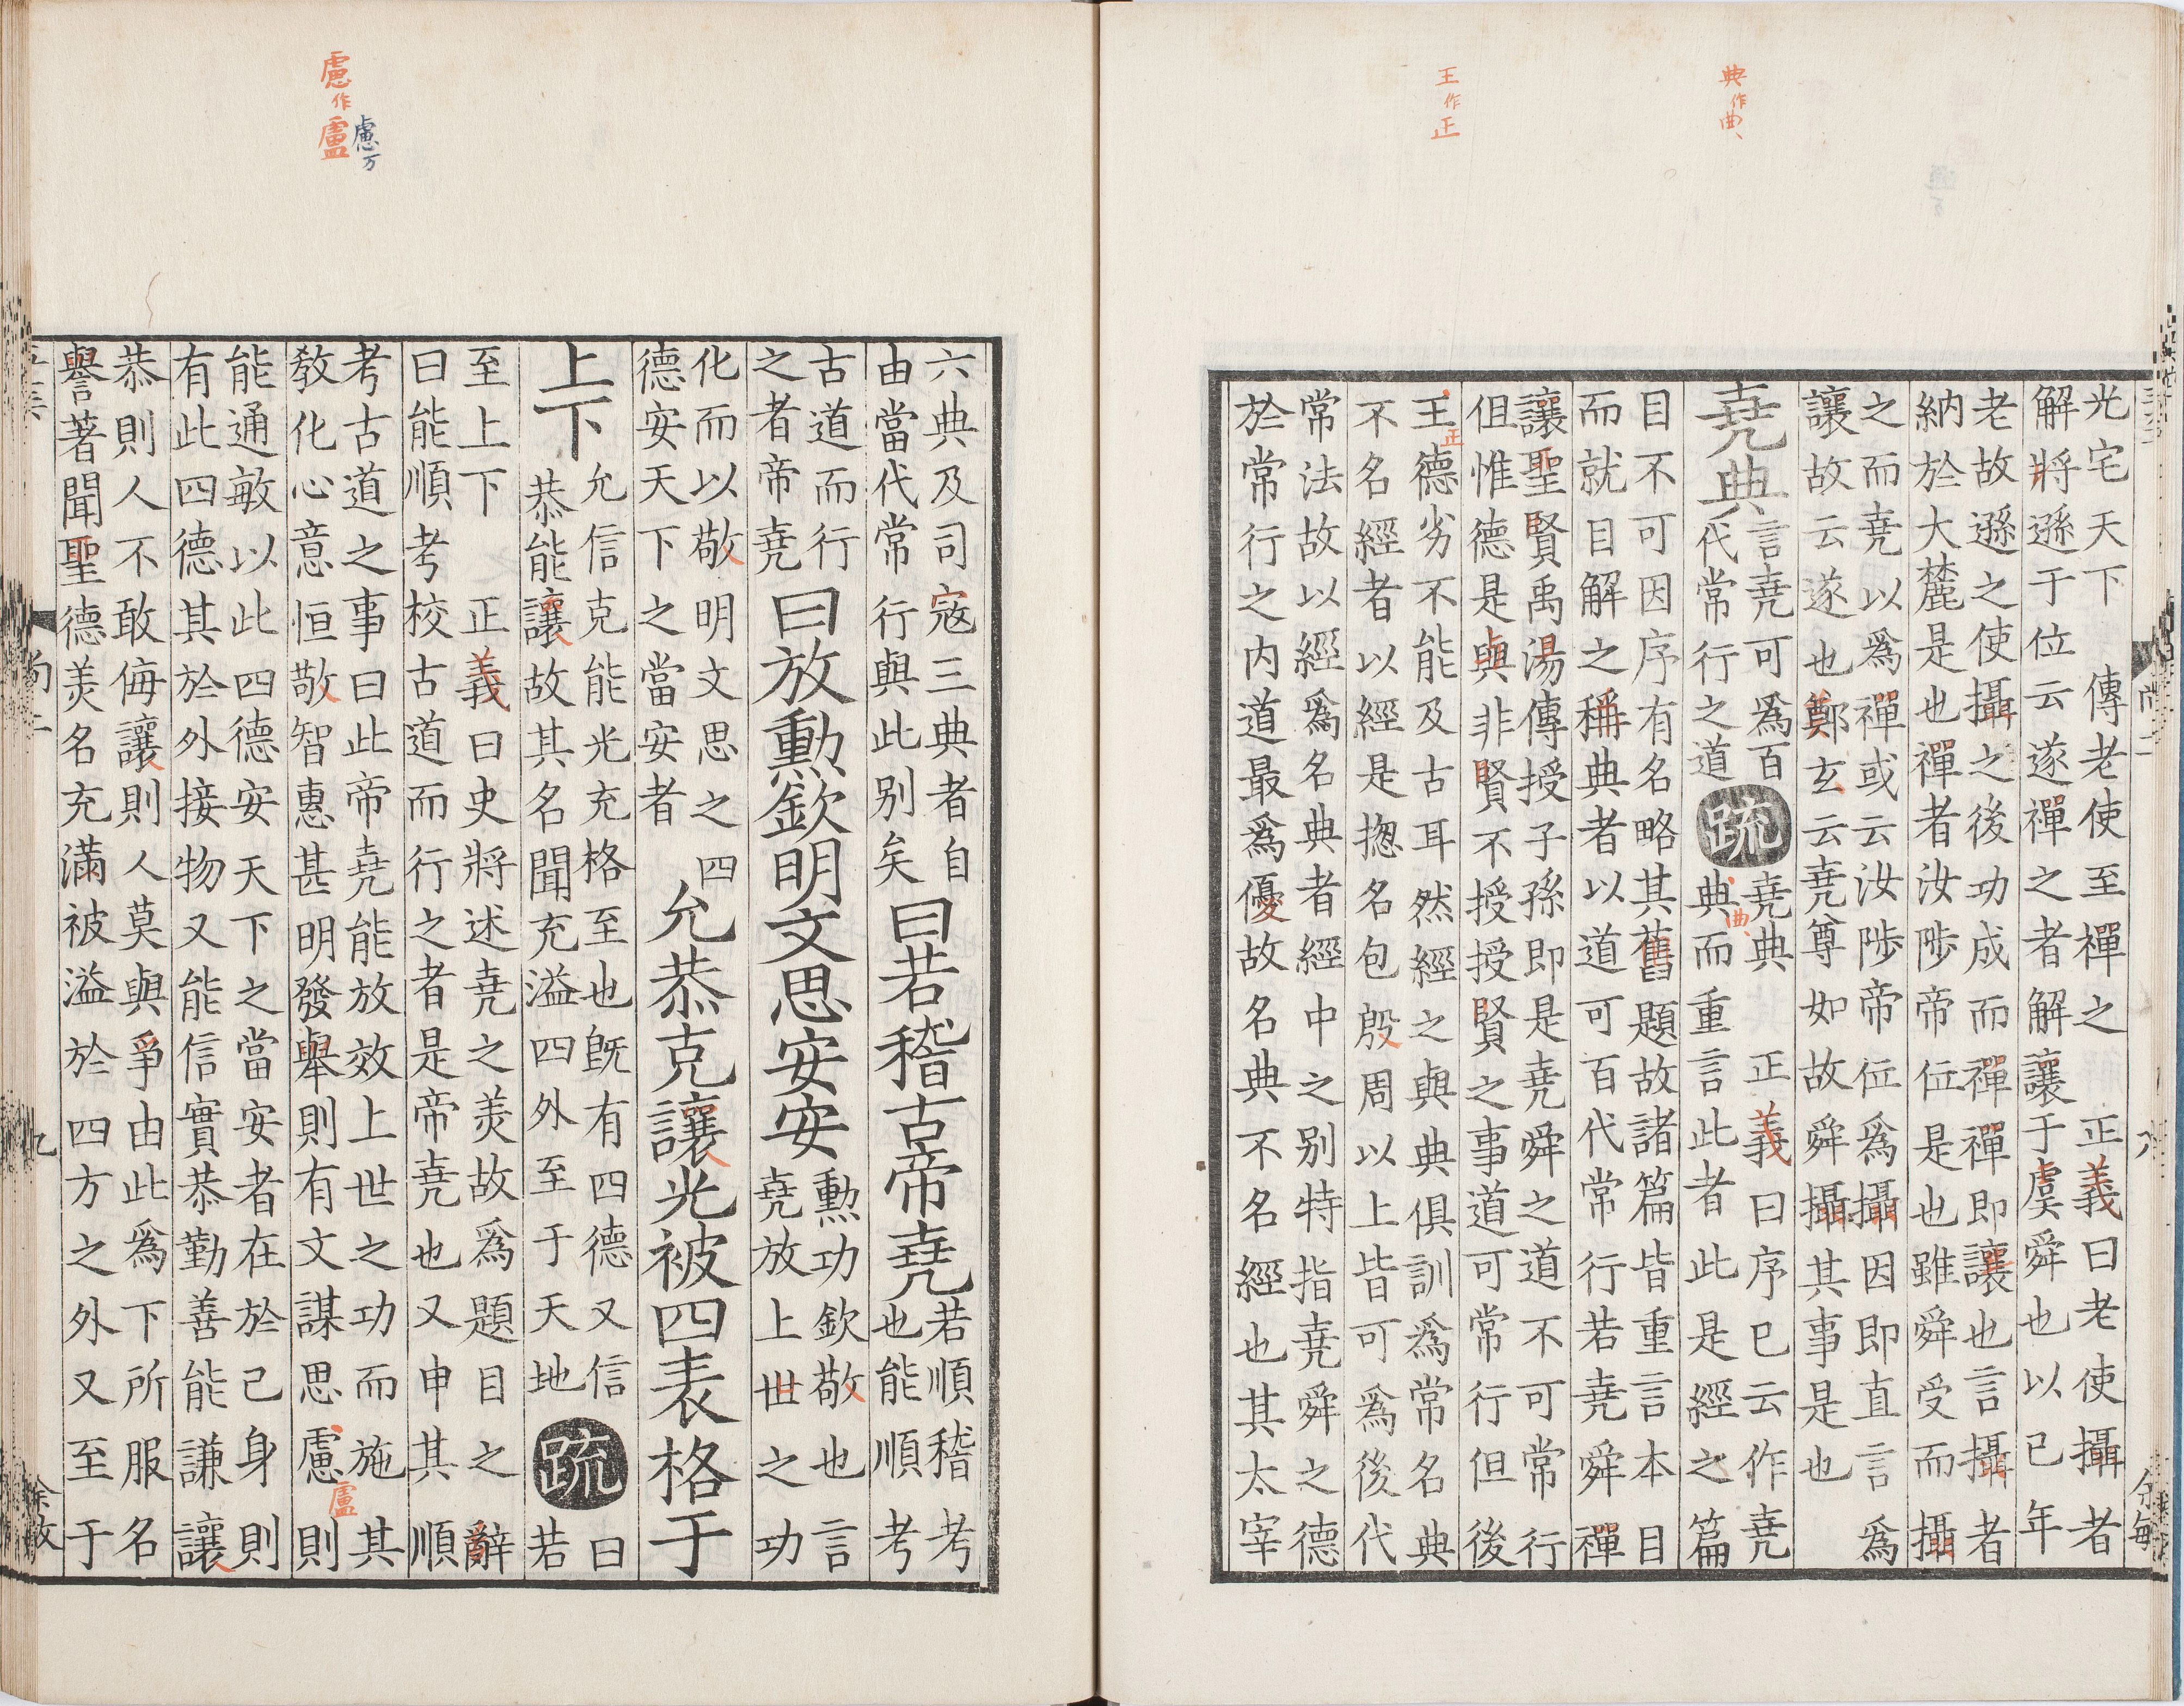 典作曲、
王作正
光宅天下　傳老使至禪之　正義曰老使攝者
解將遜于位云遂禪之者解讓于虞舜也以己年
老故遜之使攝之後功成而禪禪即讓也言攝者
納於大麓是也禪者汝陟帝位是也雖舜受而攝
之而堯以爲禪或云汝陟帝位爲攝因即直言爲
讓故云遂也鄭玄云堯尊如故舜攝其事是也
堯典
言堯可爲百
代常行之道
疏
堯典　正義曰序已云作堯
典而重言此者此是經之篇
曲、
目不可因序有名略其舊題故諸篇皆重言本目
而就目解之稱典者以道可百代常行若堯舜禪
讓聖賢禹湯傳授子孫即是堯舜之道不可常行
但惟德是與非賢不授授賢之事道可常行但後
王德劣不能及古耳然經之與典俱訓爲常名典
正
不名經者以經是揔名包殷周以上皆可爲後代
常法故以經爲名典者經中之別特指堯舜之德
於常行之內道最爲優故名典不名經也其太宰
慮作盧
慮万
六典及司寇三典者自
由當代常行與此別矣
曰若稽古帝堯
若順稽考
也能順考
古道而行
之者帝堯
曰放勳欽明文思安安
勳功欽敬也言
堯放上世之功
化而以敬明文思之四
德安天下之當安者
允恭克讓光被四表格于
上下
允信克能光充格至也旣有四德又信
恭能讓故其名聞充溢四外至于天地
疏
曰
若
至上下　正義曰史將述堯之美故爲題目之辭
曰能順考校古道而行之者是帝堯也又申其順
考古道之事曰此帝堯能放效上世之功而施其
教化心意恒敬智惠甚明發舉則有文謀思慮則
盧
能通敏以此四德安天下之當安者在於己身則
有此四德其於外接物又能信實恭勤善能謙讓
恭則人不敢侮讓則人莫與爭由此爲下所服名
譽著聞聖德美名充滿被溢於四方之外又至于